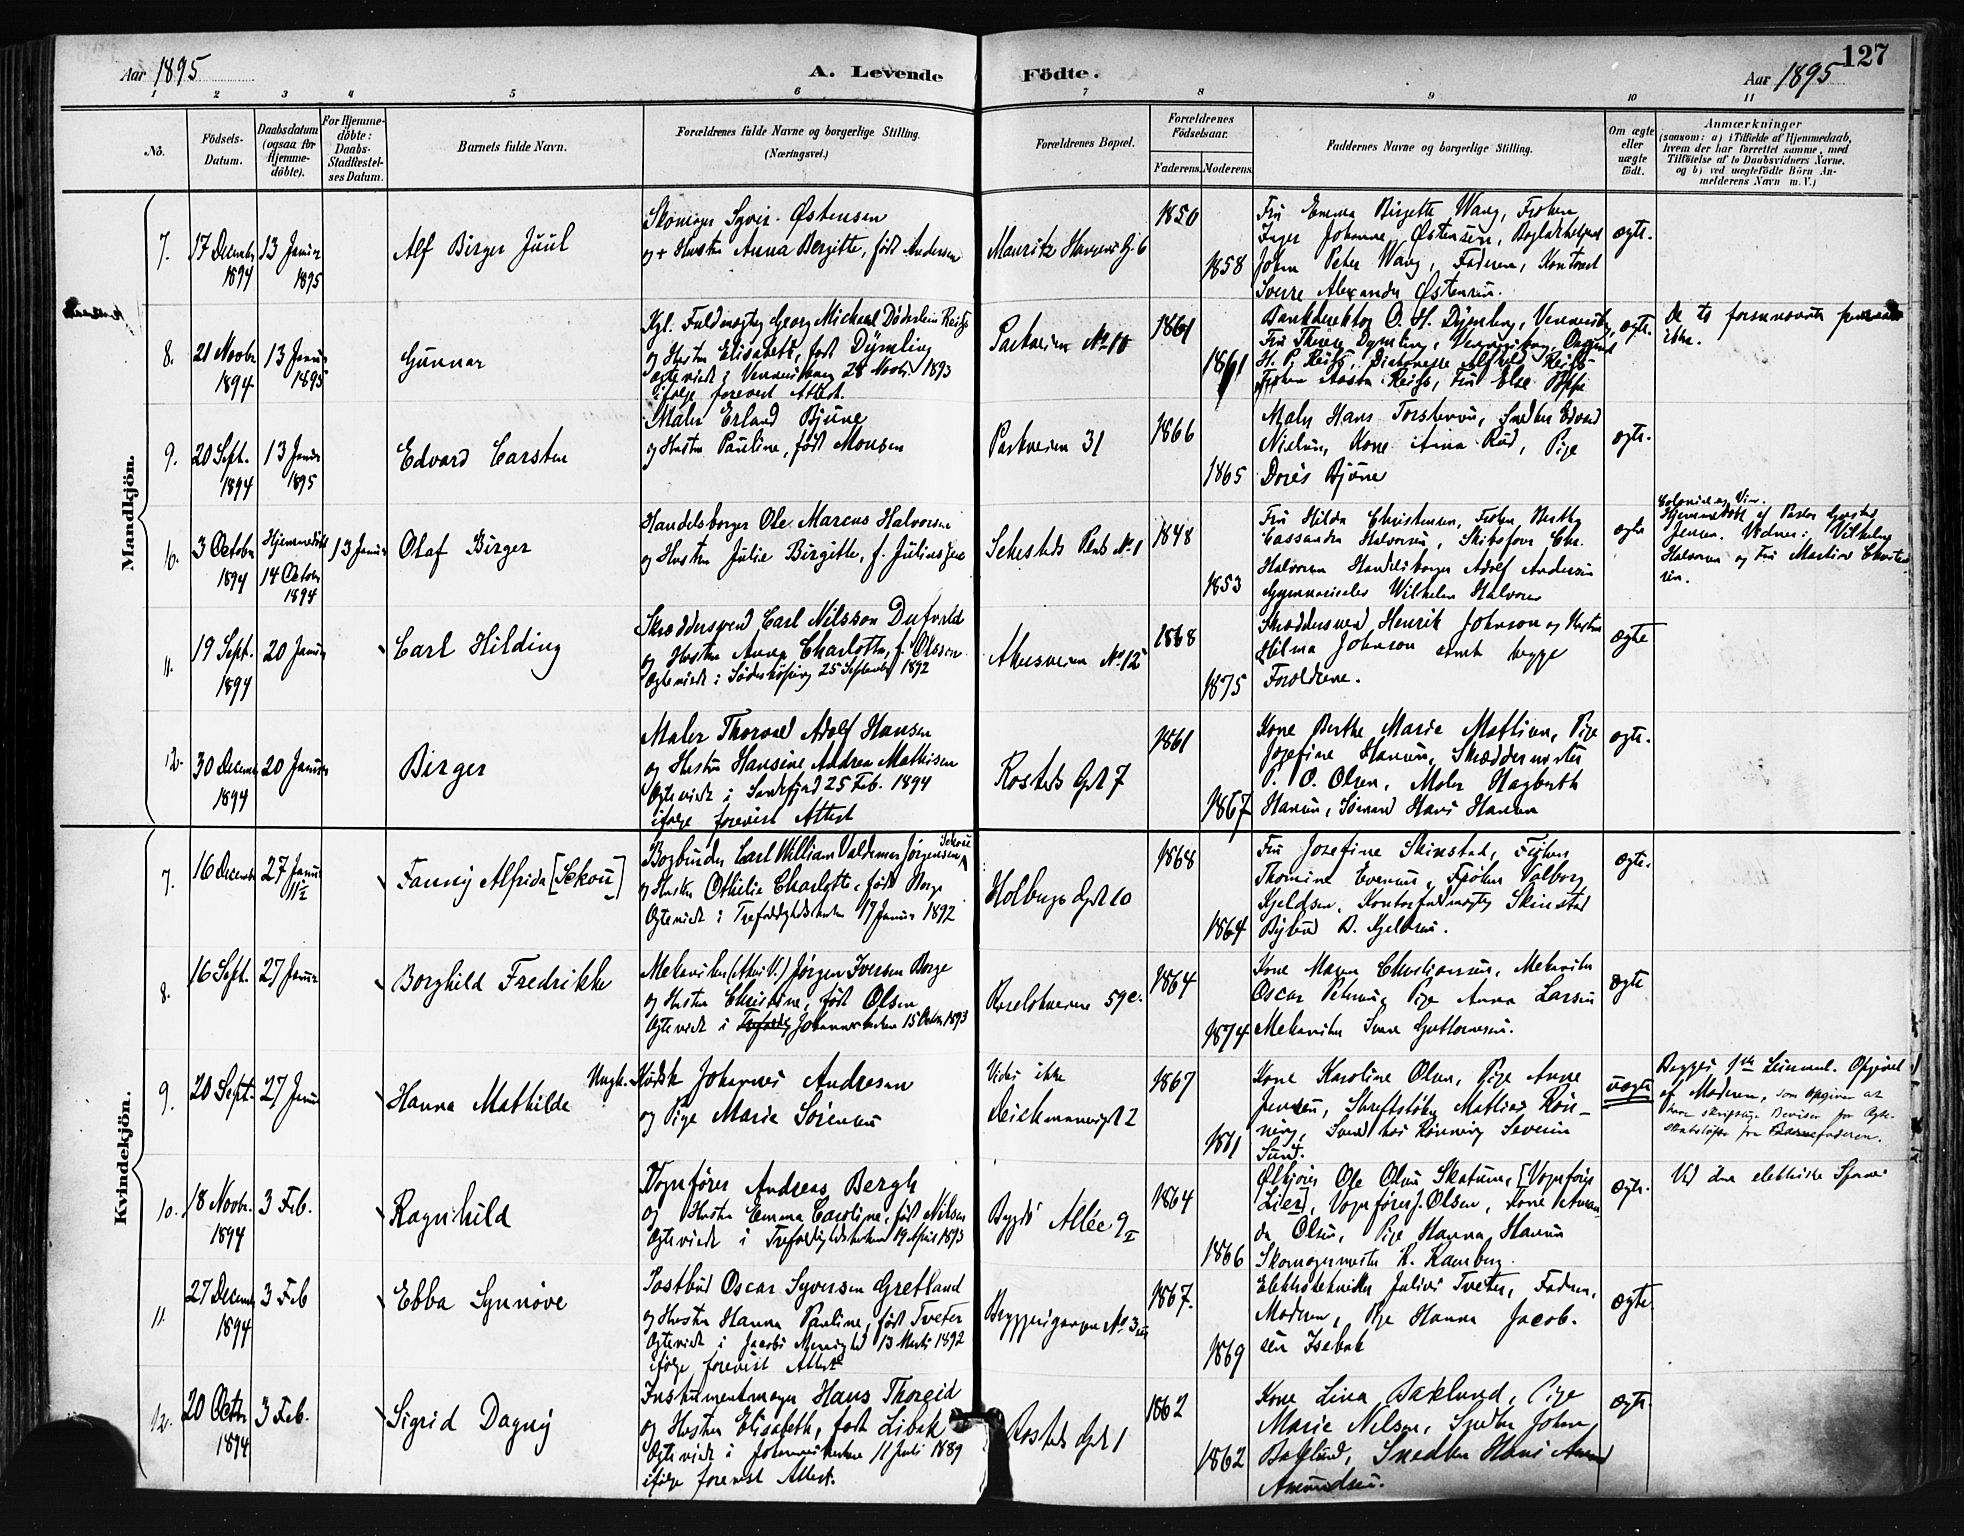 127
Aar 1895
A. Levende Födte.
Aar 1895
1 2 3 4 5 6 7 8 9 10 11
No.
Födsels-
Datum.
Daabsdatum
(ogsaa for
Hjemme-
döbte).
For Hjemme-
döbte:
Daabs-
Stadfæstel-
ses Datum.
Barnets fulde Navn.
Forældrenes fulde Navne og borgerlige Stilling.
(Næringsvei.)
Forældrenes Bopæl.
Forældrenes
Födselsaar.
Faderens. Moderens.
Faddernes Navne og borgerlig Stilling.
Om ægte
eller
uægte
födt.
Anmærkninger
(saasom: a) i Tilfælde af Hjemmedaab,
hvem der har forrettet samme, med
Tilföielse af to Daabsvidners Navne,
og b) ved uægtefödte Börn An-
melderens Navn m. V.)
Mandkjön.
7.
17 Decembr
1894
13 Januar
1895
Alf Birger Juul
Østensen
og Hustru Anna Bergitte, født Andersen
Mauritz Hansens G. 6
1850
1858
Fru Emma Birgitte Wang, Frøken
Inger Johanne Østensen,
John Peter Wang, Faderen,
Sverre Alexander Østensen.
ægte.
8.
21 Novbr
1894
13 Januar
1895
Gunnar
Kgl. Fuldmægtig Georg Michael Døderlein
og Hustru Elisabeth, født Dymling
28 Novbr 1893
ifølge forevist Attest.
Parkveien No 10
1861
1861
Bankdirektør O. H. Dymling,
ægte.
De to
ikke.
9.
20 Sept.
1894
13 Januar
1895
Edvard Carsten
Maler Erland Bjune
og Hustru Pauline, født Monsen
Parkveien 31
1866
1865
Maler Hans Torstensen, Snedker Edvard
Nielsen, Kone Anna Rud, Pige
Doris Bjune
ægte.
10.
3 October
1894
Hjemmedøbt
14 October
1894
13 Januar
Olaf Birger
Handelsborger Ole Marcus Halvorsen
og Hustru Julie Birgitte, f. Julius
No 1
1848
1853
Fru Hilda Christensen, Frøken Berthy
Cassandra Halvorsen,
Halvorsen Handelsborger Adolf Andersen
Wilhelm Halvorsen
ægte
Hjemmedøbt af
Jensen. Vidner: Vilhelm
Halvorsen og Fru Martine Christen-
sen.
11.
19 Sept.
1894
20 Januar
Carl Hilding
Skræddersvend Carl Nilsson Dufvald
og Hustru Anna Charlotte, f. Olsson
Ægteviede i Söderköping 25 September 1892
Akersveien No 12
1868
1875
Skræddersvend Henrik Johnson og Hustru
Hilma Johnson samt begge
Forældrene.
ægte
12.
30 Decembr
1894
20 Januar
Birger
Maler Thorvald Adolf Hansen
og Hustru Hansine Andrea Mathisen
Ægteviede i Sandefjord 25 Feb. 1894
ifølge forevist Attest
Rosteds Gd 7
1861
1867
Kone Berthe Marie Mathisen, Pige
Josefine Hansen, Skræddermester
P. O. Olsen, Maler Hagbarth
Hansen, Sömand Hans Hansen
ægte.
Kvindekjön.
7.
16 Decembr
27 Januar
11½
Fanny Alfrida [Sckou]
Bogbinder Carl William Valdemar Jørgensen Sckou
og Hustru Othilie Charlotte, født Borge
Ægteviede i Trefoldighedskirken 17 Januar 1892
Holbergs Gd 10
1868
1864
Fru Josefine Skinstad, Frøken
Thomine Evensen, Frøken Valborg
Kjeldsen, Kontorfuldmægtig Skinstad
Bybud B. Kjeldsen.
ægte.
8.
16 Sept.
27 Januar
Borghild Fredrikke
Mekaniker (Akers V.) Jørgen Iversen Borge
og Hustru Christine, født Olsen
Ægteviede i Johanneskirken 15 October 1893
59 c.
1864
1874
Kone Maren Christiansen, Mekaniker
Oscar Petersen, Pige Anna Larsen
Mekaniker Guttormsen.
ægte
9.
20 Sept.
27 Januar
Hanna Mathilde
Ungk. Johannes Andresen
og Pige Marie Sörensen
Vides ikke
Deichmannsgd 2
1867
1871
Kone Karoline Olsen, Pige Anne
Jensen, Skriftstøber Mathias Røn-
ning, Svend hos Rønning Severin
Sund.
uægte
Begges 1ste Leiermaal. Opgivet
af Moderen, som opgiver at
have skriftlige Beviser for Ægte-
skabsløfte fra Barnefaderen.
10.
18 Novbr.
1894
3 Feb.
Ragnhild
Vognfører Andreas Bergh
og Hustru Emma Caroline, født Nilsen
Ægteviede i Trefoldighedskirken 19 April 1893
Bygdö Allée 9 II
1864
1866
Ølkjører Ole Olsen Skatum, [Vognfører
Lier], Vognfører J. Olsen, Kone Aman-
da Olsen, Pige Hanna Hansen
Skomagermester R. Ramberg.
ægte.
Ved den elektriske Sporvei
11.
27 Decembr
1894
3 Feb
Ebba Synnöve
Postbud Oscar Syversen Gretland
og Hustru Hanna Pauline, født Tveter
Ægteviede i Jacobs Menighed 13 Marts 1892
ifølge forevist Attest
Bryggerigangen No 3
1867.
1869
Elektrotekniker Julius Tveter, Faderen,
Moderen, Pige Hanna Jacob-
sen Isebak
ægte.
12.
20 Octbr
1894
3 Feb.
Sigrid Dagny
Instrumentmager Hans Thorgid
og Hustru Elisabeth, født Libak
Ægteviede i Johanneskirken 11 Juli 1889
ifølge forevist Attest.
Rosteds Gd 1
1862
1862
Kone Lina Baklund, Pige
Marie Nilsen, Snedker Johan
Baklund, Snedker Hans
Amundsen.
ægte.